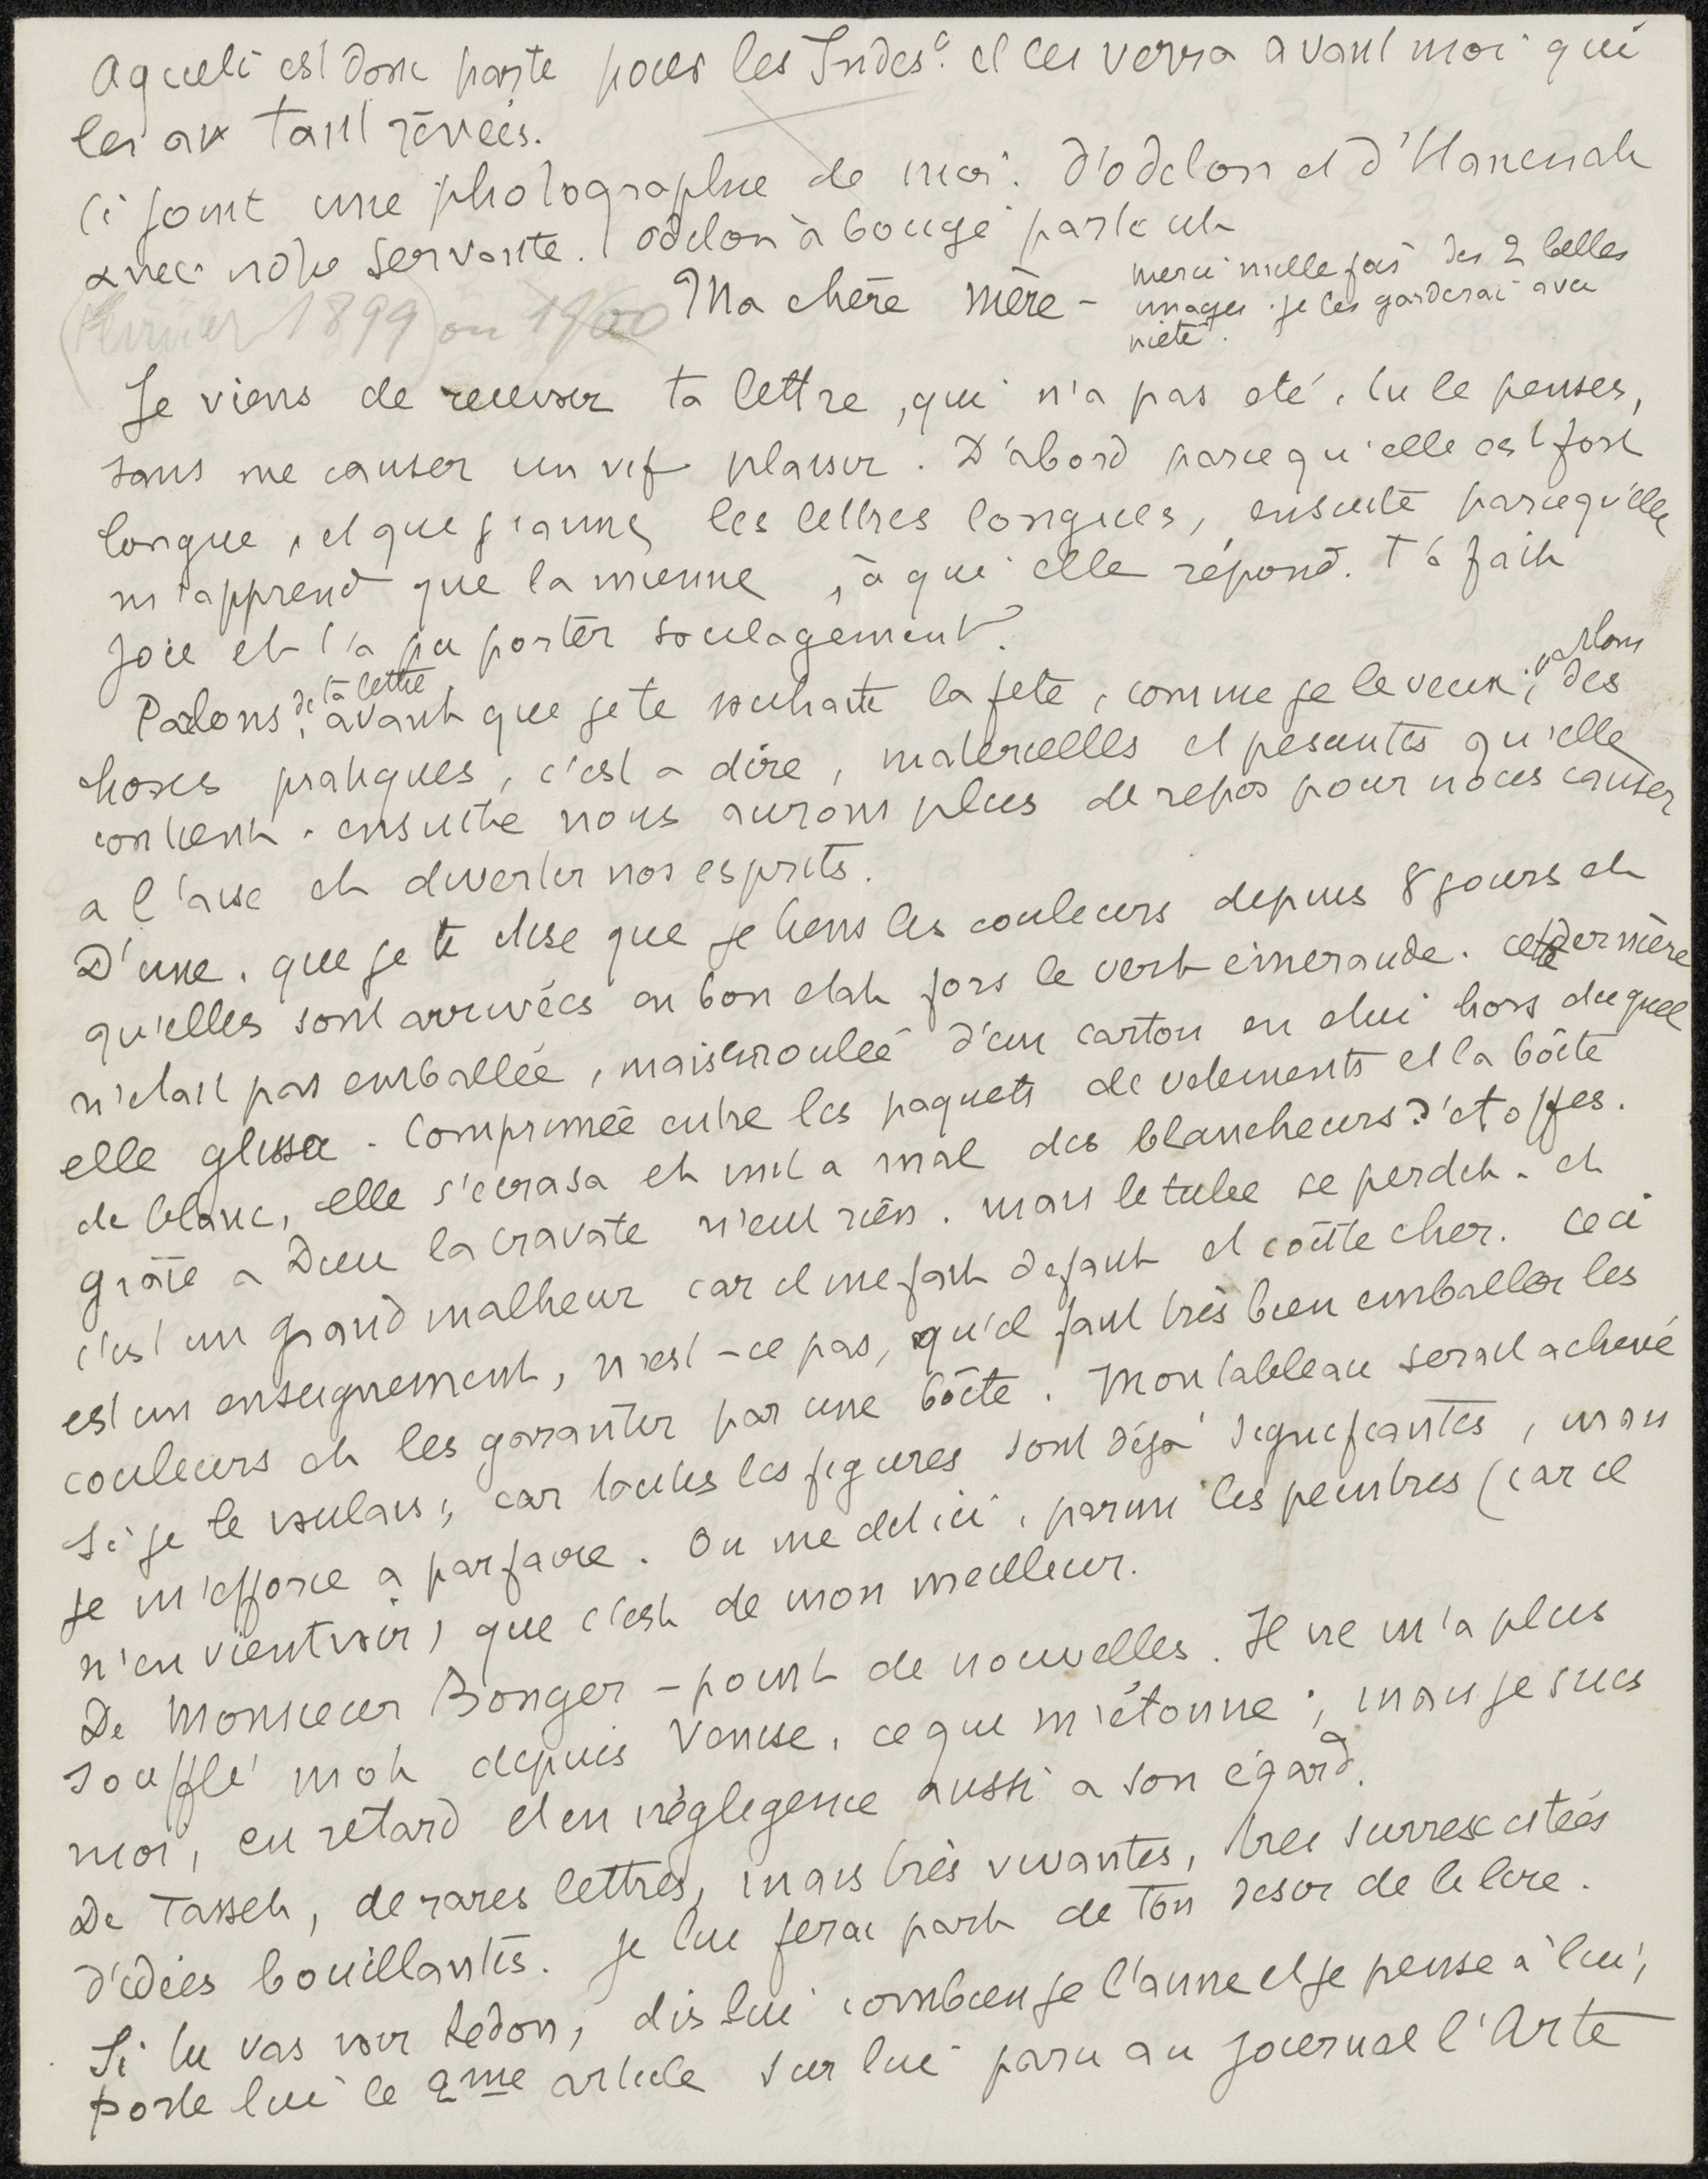 Agueli est donc parti pour les Indes. et les verra avant moi qui
les ai tant rêvées.
Ci joint une photographie de moi. d'odelon et d'Hanenah
avec notre servante. odelon à bougé
Ma chère mère -
merci mille fois des 2 belles
images. je les garderai avec
piété.
(février 1899) ou 1900
Je viens de recevoir ta lettre, qui n'a pas été, tu le penses,
sans me causer un vif plaisir. D'abord parcequ'elle est fort
longue, et que j'aime les lettres longues, ensuite parcequ'elle
m'apprend que la mienne, à qui elle répond. t'a fait
joie et t'a pu porter soulagement.
Parlons, de ta lettre avant que je te souhaite la fete, comme je le veux; parlons des
choses pratiques, c'est a dire, materielles et pesantes qu'elle
contient. ensuite nous aurons plus de repos pour nous causer
a l'aise et divertir nos esprits.
D'une. que je te dise que je tiens les couleurs depuis 8 jours et
qu'elles sont arrivées en bon etat fors le vert emeraude. cette dernière
n'etait pas emballée, mais enroulée d'un carton en etui hors duquel
elle glissa. Comprimée entre les paquets de vetements et la boîte
de blanc, elle s'ecrasa et mit a mal des blancheurs d'etoffes.
grâce a Dieu la cravate n'eut rien. mais le tube se perdit. et
c'est un grand malheur car il me fait defaut et coûte cher. Ceci
est un enseignement, n'est-ce pas, qu'il faut très bien emballer les
couleurs et les garantir par une boîte. Mon tableau serait achevé
si je le voulais; car toutes les figures sont déjà signifiantes, mais
je m'efforce a parfaire. On me dit ici, parmi les peintres (car il
n'en vient voir) que c'est de mon meilleur.
De Monsieur Bonger - point de nouvelles. Il ne m'a plus
soufflé mot depuis Venise, ce que m'étonne; mais je suis
moi, en retard et en néglegence aussi a son égard.
De Tasset, de rares lettres, mais très vivantes, tres surrexcitées
d'idées bouillantes. Je lui ferai part de ton desir de le lire.
Si tu vas voir Redon, dis lui combien je l'aime et je pense à lui,
porte lui le 2me article sur lui paru au journal l'Arte